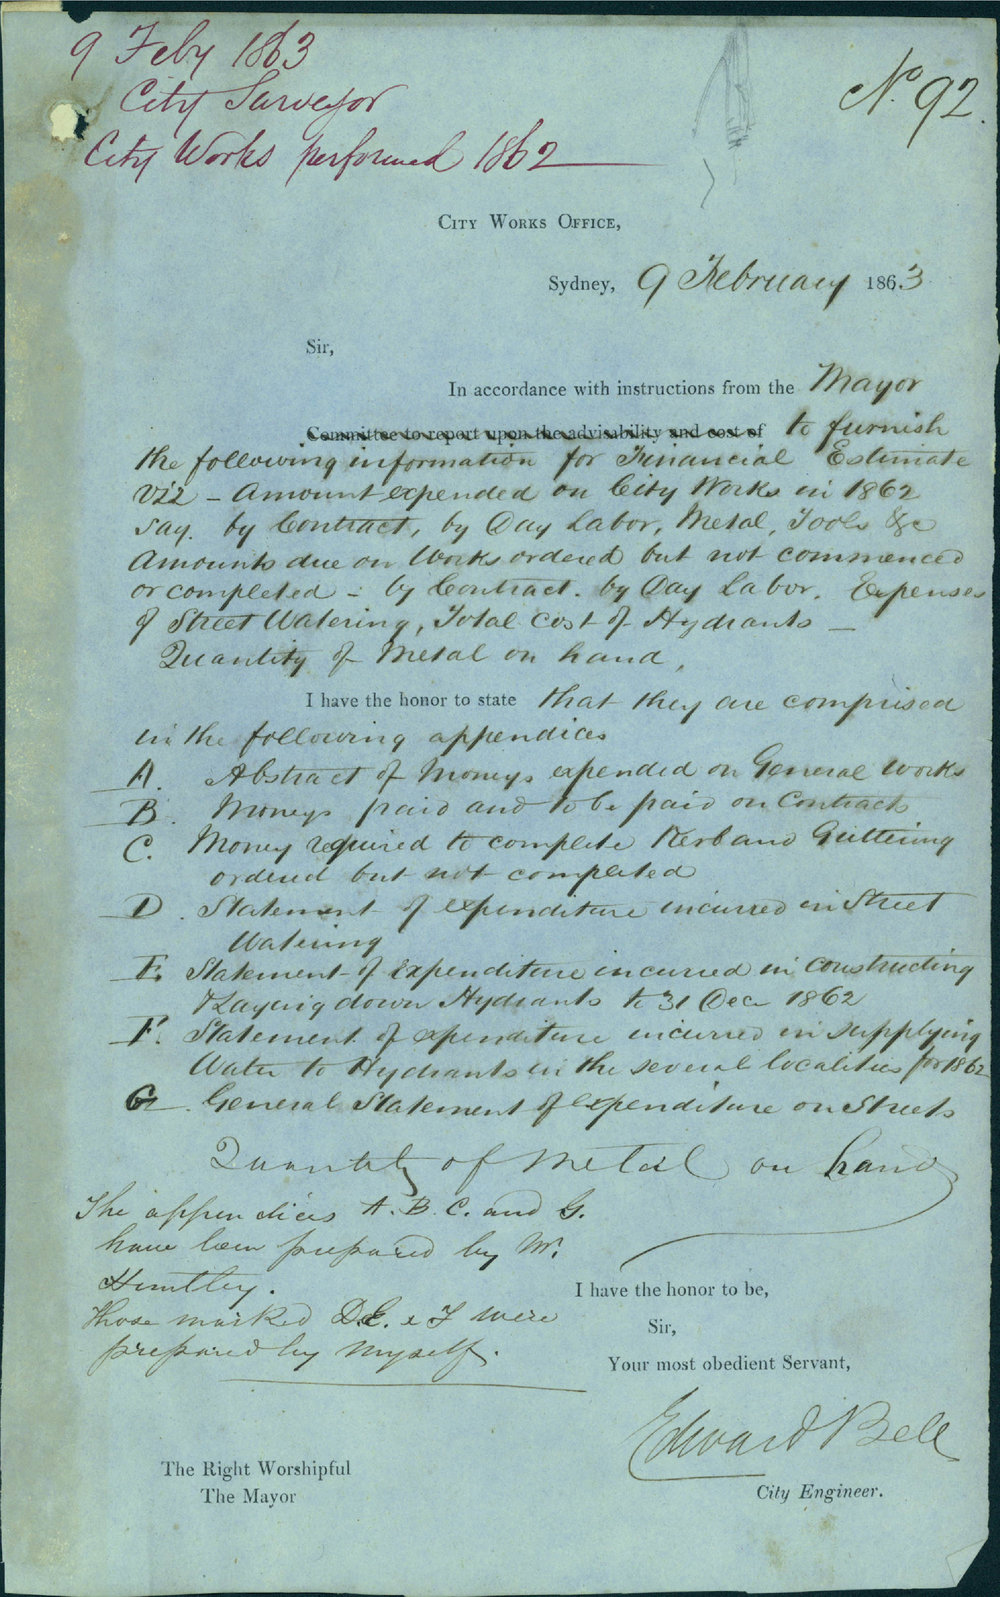 9 Feby 1863
City Surveyor
City Works performed 1862
No. 92.
City Works Office,
Sydney, 9 February 1863
Sir,
In accordance with instructions from the Mayor
Committee to report upon the advisability and cost of to furnish
the following information for Financial Estimate
viz - Amount expended on City Works in 1862
say. by Contract, by Day Labor, Metal, Tools &c
Amounts due on Works ordered but not commenced
or completed - by Contract. by Day Labor. Expenses
of Street Watering, Total Cost of Hydrants -
Quantity of Metal on hand,
I have the honor to state that they are comprised
in the following appendices
A. Abstract of Moneys expended on General Works
B. Moneys paid and to be paid on Contracts
C. Money required to complete Kerb and Guttering
ordered but not completed
D. Statement of expenditure incurred in Street
Watering
E. Statement of Expenditure incurred in constructing
& Laying down Hydrants to 31 Dec 1862
F. Statement of expenditure incurred in supplying
Water to Hydrants in the several localities for 1862
G. General Statement of expenditure on Streets
Quantity of Metal on hand
The appendices A. B. C. and G.
have been prepared by Mr.
Huntley.
Those marked D.E. & F were
prepared by myself.
I have the honor to be,
Sir,
Your most obedient Servant,
Edward Bell
City Engineer.
The Right Worshipful
The Mayor